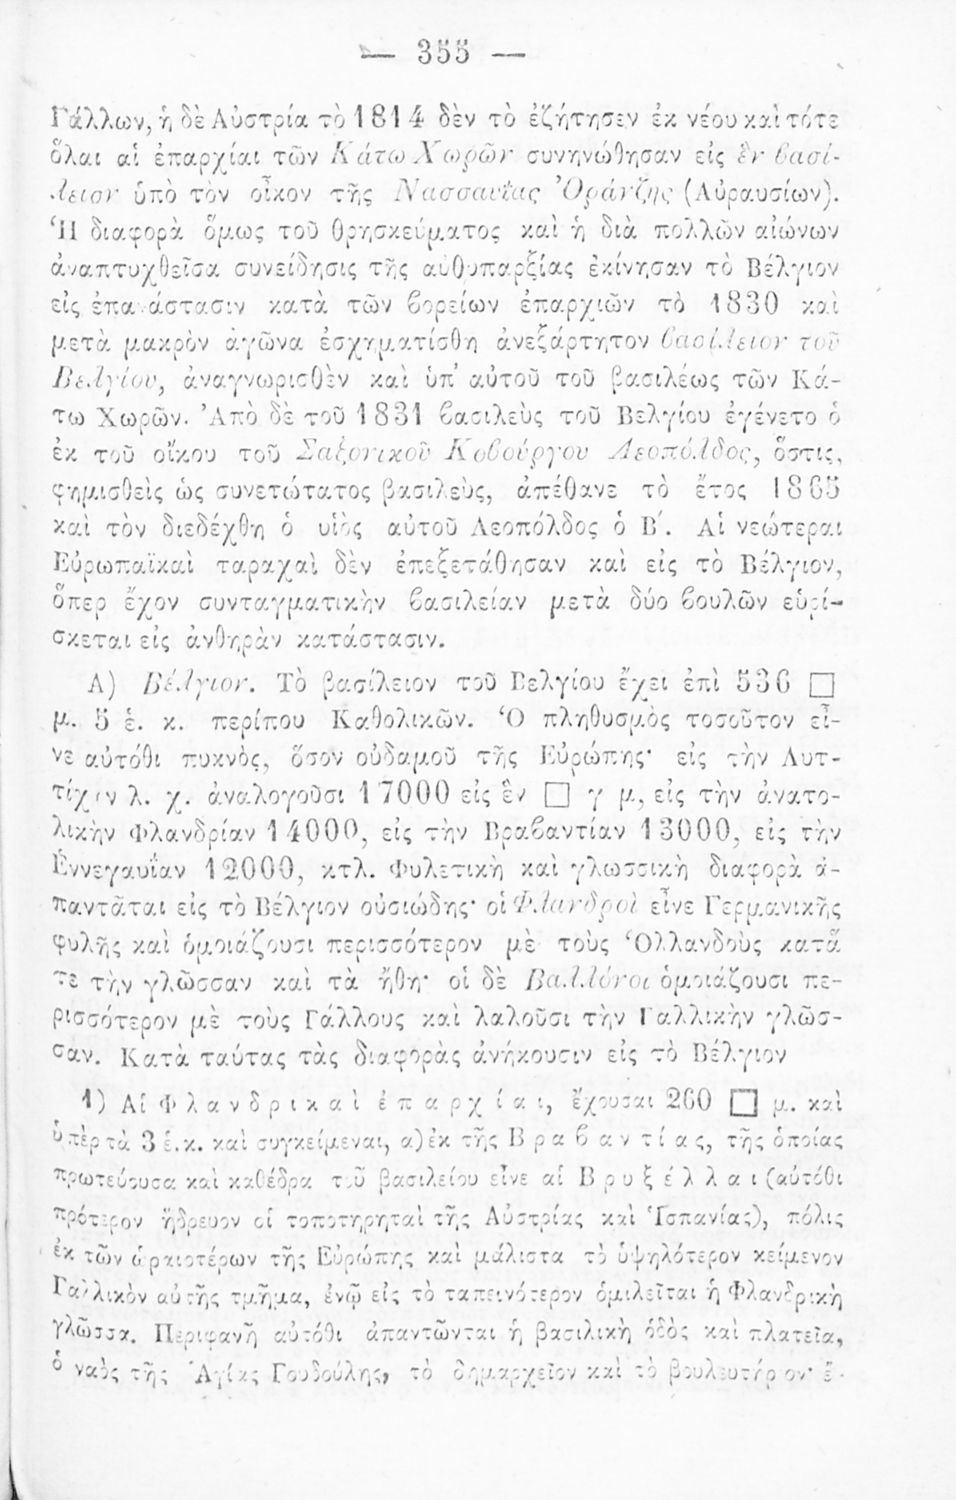 — 355 —
Γάλλων, ἡ δὲ Αὐστρία τὸ 1814 δὲν τὸ ἐζήτησεν ἐκ νέου καὶ τότε
ὅλαι αἱ ἐπαρχίαι τῶν Κάτω Χωρῶν συνηνώθησαν εἰς ἓν βασί-
λειον ὑπὸ τὸν οἶκον τῆς Νασσαυΐας Ὀράνζης (Αὐραυσίων).
Ἡ διαφορὰ ὅμως τοῦ θρησκεύματος καὶ ἡ διὰ πολλῶν αἰώνων
ἀναπτυχθεῖσα συνείδησις τῆς αὐθυπαρξίας ἐκίνησαν τὸ Βέλγιον
εἰς ἐπανάστασιν κατὰ τῶν βορείων ἐπαρχιῶν τὸ 1830 καὶ
μετὰ μακρὸν ἀγῶνα ἐσχηματίσθη ἀνεξάρτητον βασίλειον τοῦ
Βελγίου, ἀναγνωρισθὲν καὶ ὑπ' αὐτοῦ τοῦ βασιλέως τῶν Κά-
τω Χωρῶν. Ἀπὸ δὲ τοῦ 1831 βασιλεὺς τοῦ Βελγίου ἐγένετο ὁ
ἐκ τοῦ οἴκου τοῦ Σαξονικοῦ Κοβούργου Λεοπόλδος, ὅστις,
φημισθεὶς ὡς συνετώτατος βασιλεὺς, ἀπέθανε τὸ ἔτος 1865
καὶ τὸν διεδέχθη ὁ υἱὸς αὐτοῦ Λεοπόλδος ὁ Β΄. Αἱ νεώτεραι
Εὐρωπαϊκαὶ ταραχαὶ δὲν ἐπεξετάθησαν καὶ εἰς τὸ Βέλγιον,
ὅπερ ἔχον συνταγματικὴν βασιλείαν μετὰ δύο βουλῶν εὑρί-
σκεται εἰς ἀνθηρὰν κατάστασιν.
Α) Βέλγιον. Τὸ βασίλειον τοῦ Βελγίου ἔχει ἐπὶ 536 □
μ. 5 ἑ. κ. περίπου Καθολικῶν. Ὁ πληθυσμὸς τοσοῦτον εἶ-
νε αὐτόθι πυκνὸς, ὅσον οὐδαμοῦ τῆς Εὐρώπης· εἰς τὴν Λυτ-
τίχην λ. χ. ἀναλογοῦσι 17000 εἰς ἓν □ γ μ, εἰς τὴν ἀνατο-
λικὴν Φλανδρίαν 14000, εἰς τὴν Βραβαντίαν 13000, εἰς τὴν
Ἑννεγαυΐαν 12000, κτλ. Φυλετικὴ καὶ γλωσσικὴ διαφορὰ ἀ-
παντᾶται εἰς τὸ Βέλγιον οὐσιώδης· οἱ Φλανδροὶ εἶνε Γερμανικῆς
φυλῆς καὶ ὁμοιάζουσι περισσότερον μὲ τοὺς Ὁλλανδοὺς κατά
τε τὴν γλῶσσαν καὶ τὰ ἤθη· οἱ δὲ Βαλλόνοι ὁμοιάζουσι πε-
ρισσότερον μὲ τοὺς Γάλλους καὶ λαλοῦσι τὴν Γαλλικὴν γλῶσ-
σαν. Κατὰ ταύτας τὰς διαφορὰς ἀνήκουσιν εἰς τὸ Βέλγιον
1) Αἱ Φλανδρικαὶ ἐπαρχίαι, ἔχουσαι 260 □ μ. καὶ
ὑπὲρ τὰ 3 ἑ. κ. καὶ συγκείμεναι, α) ἐκ τῆς Βραβαντίας, τῆς ὁποίας
πρωτεύουσα καὶ καθέδρα τοῦ βασιλείου εἶνε αἱ Βρυξέλλαι (αὐτόθι
πρότερον ἥδρευον οἱ τοποτηρηταὶ τῆς Αὐστρίας καὶ Ἱσπανίας), πόλις
ἐκ τῶν ὡραιοτέρων τῆς Εὐρώπης καὶ μάλιστα τὸ ὑψηλότερον κείμενον
Γαλλικὸν αὐτῆς τμῆμα, ἐνῷ εἰς τὸ ταπεινότερον ὁμιλεῖται ἡ Φλανδρικὴ
γλῶσσα. Περιφανῆ αὐτόθι ἀπαντῶνται ἡ βασιλικὴ ὁδὸς καὶ πλατεῖα,
ὁ ναὸς τῆς Ἁγίας Γουδούλης, τὸ δημαρχεῖον καὶ τὸ βουλευτήριον· ἔ-